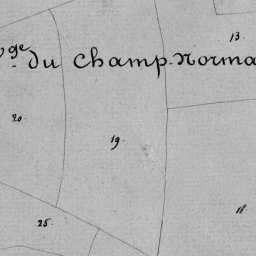 13.
ge du Champ-Norma
20.
19.
25.